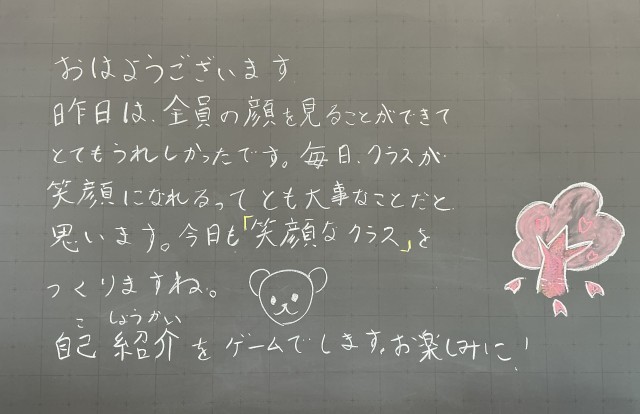 おはようございます
昨日は、全員の顔を見ることができて
とてもうれしかったです。毎日、クラスが
笑顔になれるってとも大事なことだと
思います。今日も「笑顔なクラス」を
つくりますね。
こ しょうかい
自己紹介をゲームでします。お楽しみに!